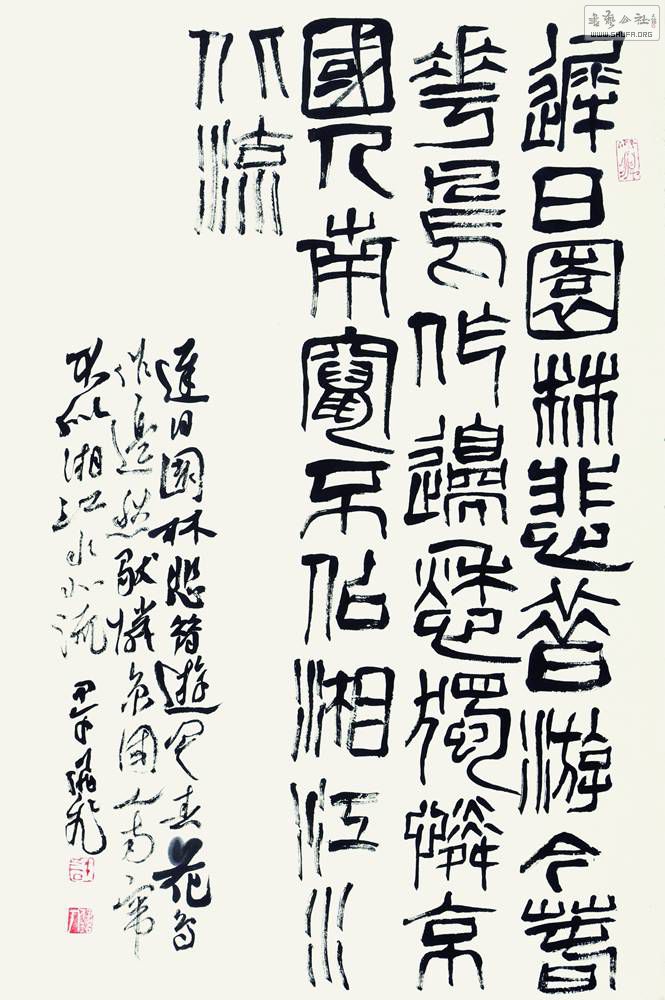 遲日園林悲昔游今春
華鳥作邊愁獨憐京
國人南竄不佀湘江水
北流
遲日園林悲昔遊今春花鳥
作邊愁獨憐京國人南竄
不似湘江水北流 甲午
書藝公社
WWW.SHUFA.ORG